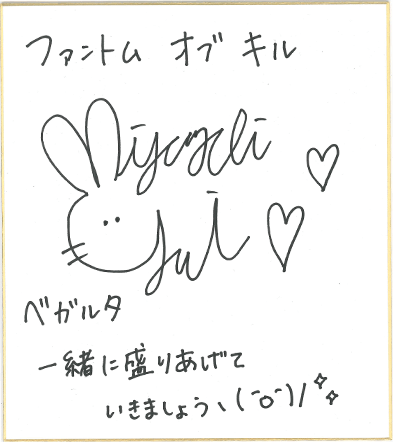 ファントム オブ キル
ベガルタ
一緒に盛りあげて
いきましょうヽ(^o^)/